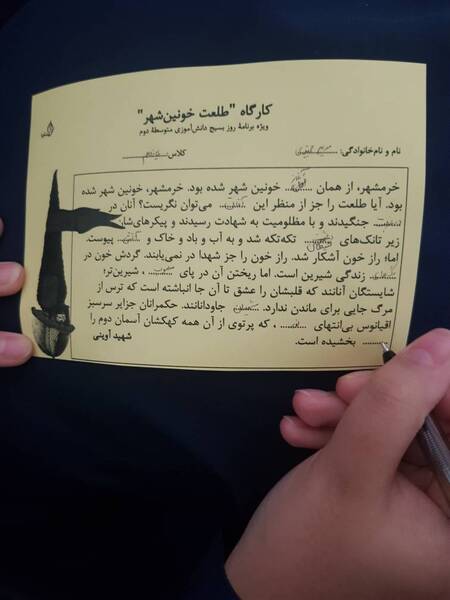 کارگاه "طلعت خونین‌شهر"
ویژه برنامهٔ روز بسیج دانش‌آموزی متوسطهٔ دوم
نام و نام‌خانوادگی: کلاس
خرمشهر، از همان آغاز خونین شهر شده بود. خرمشهر، خونین شهر شده
بود. آیا طلعت را جز از منظر این می‌توان نگریست؟ آنان در
جنگیدند و با مظلومیت به شهادت رسیدند و پیکرهای‌شان
زیر تانک‌های شیطان تکه‌تکه شد و به آب و باد و خاک و پیوست.
اما؛ راز خون آشکار شد. راز خون را جز شهدا در نمی‌یابند. گردش خون در
زندگی شیرین است. اما ریختن آن در پای ، شیرین‌تر؛
شایستگان آنانند که قلبشان را عشق تا آن جا انباشته است که ترس از
مرگ جایی برای ماندن ندارد. جاودانانند. حکمرانان جزایر سرسبز
اقیانوس بی‌انتهای ، که پرتوی از آن همه کهکشان آسمان دوم را
........ بخشیده است.
شهید آوینی